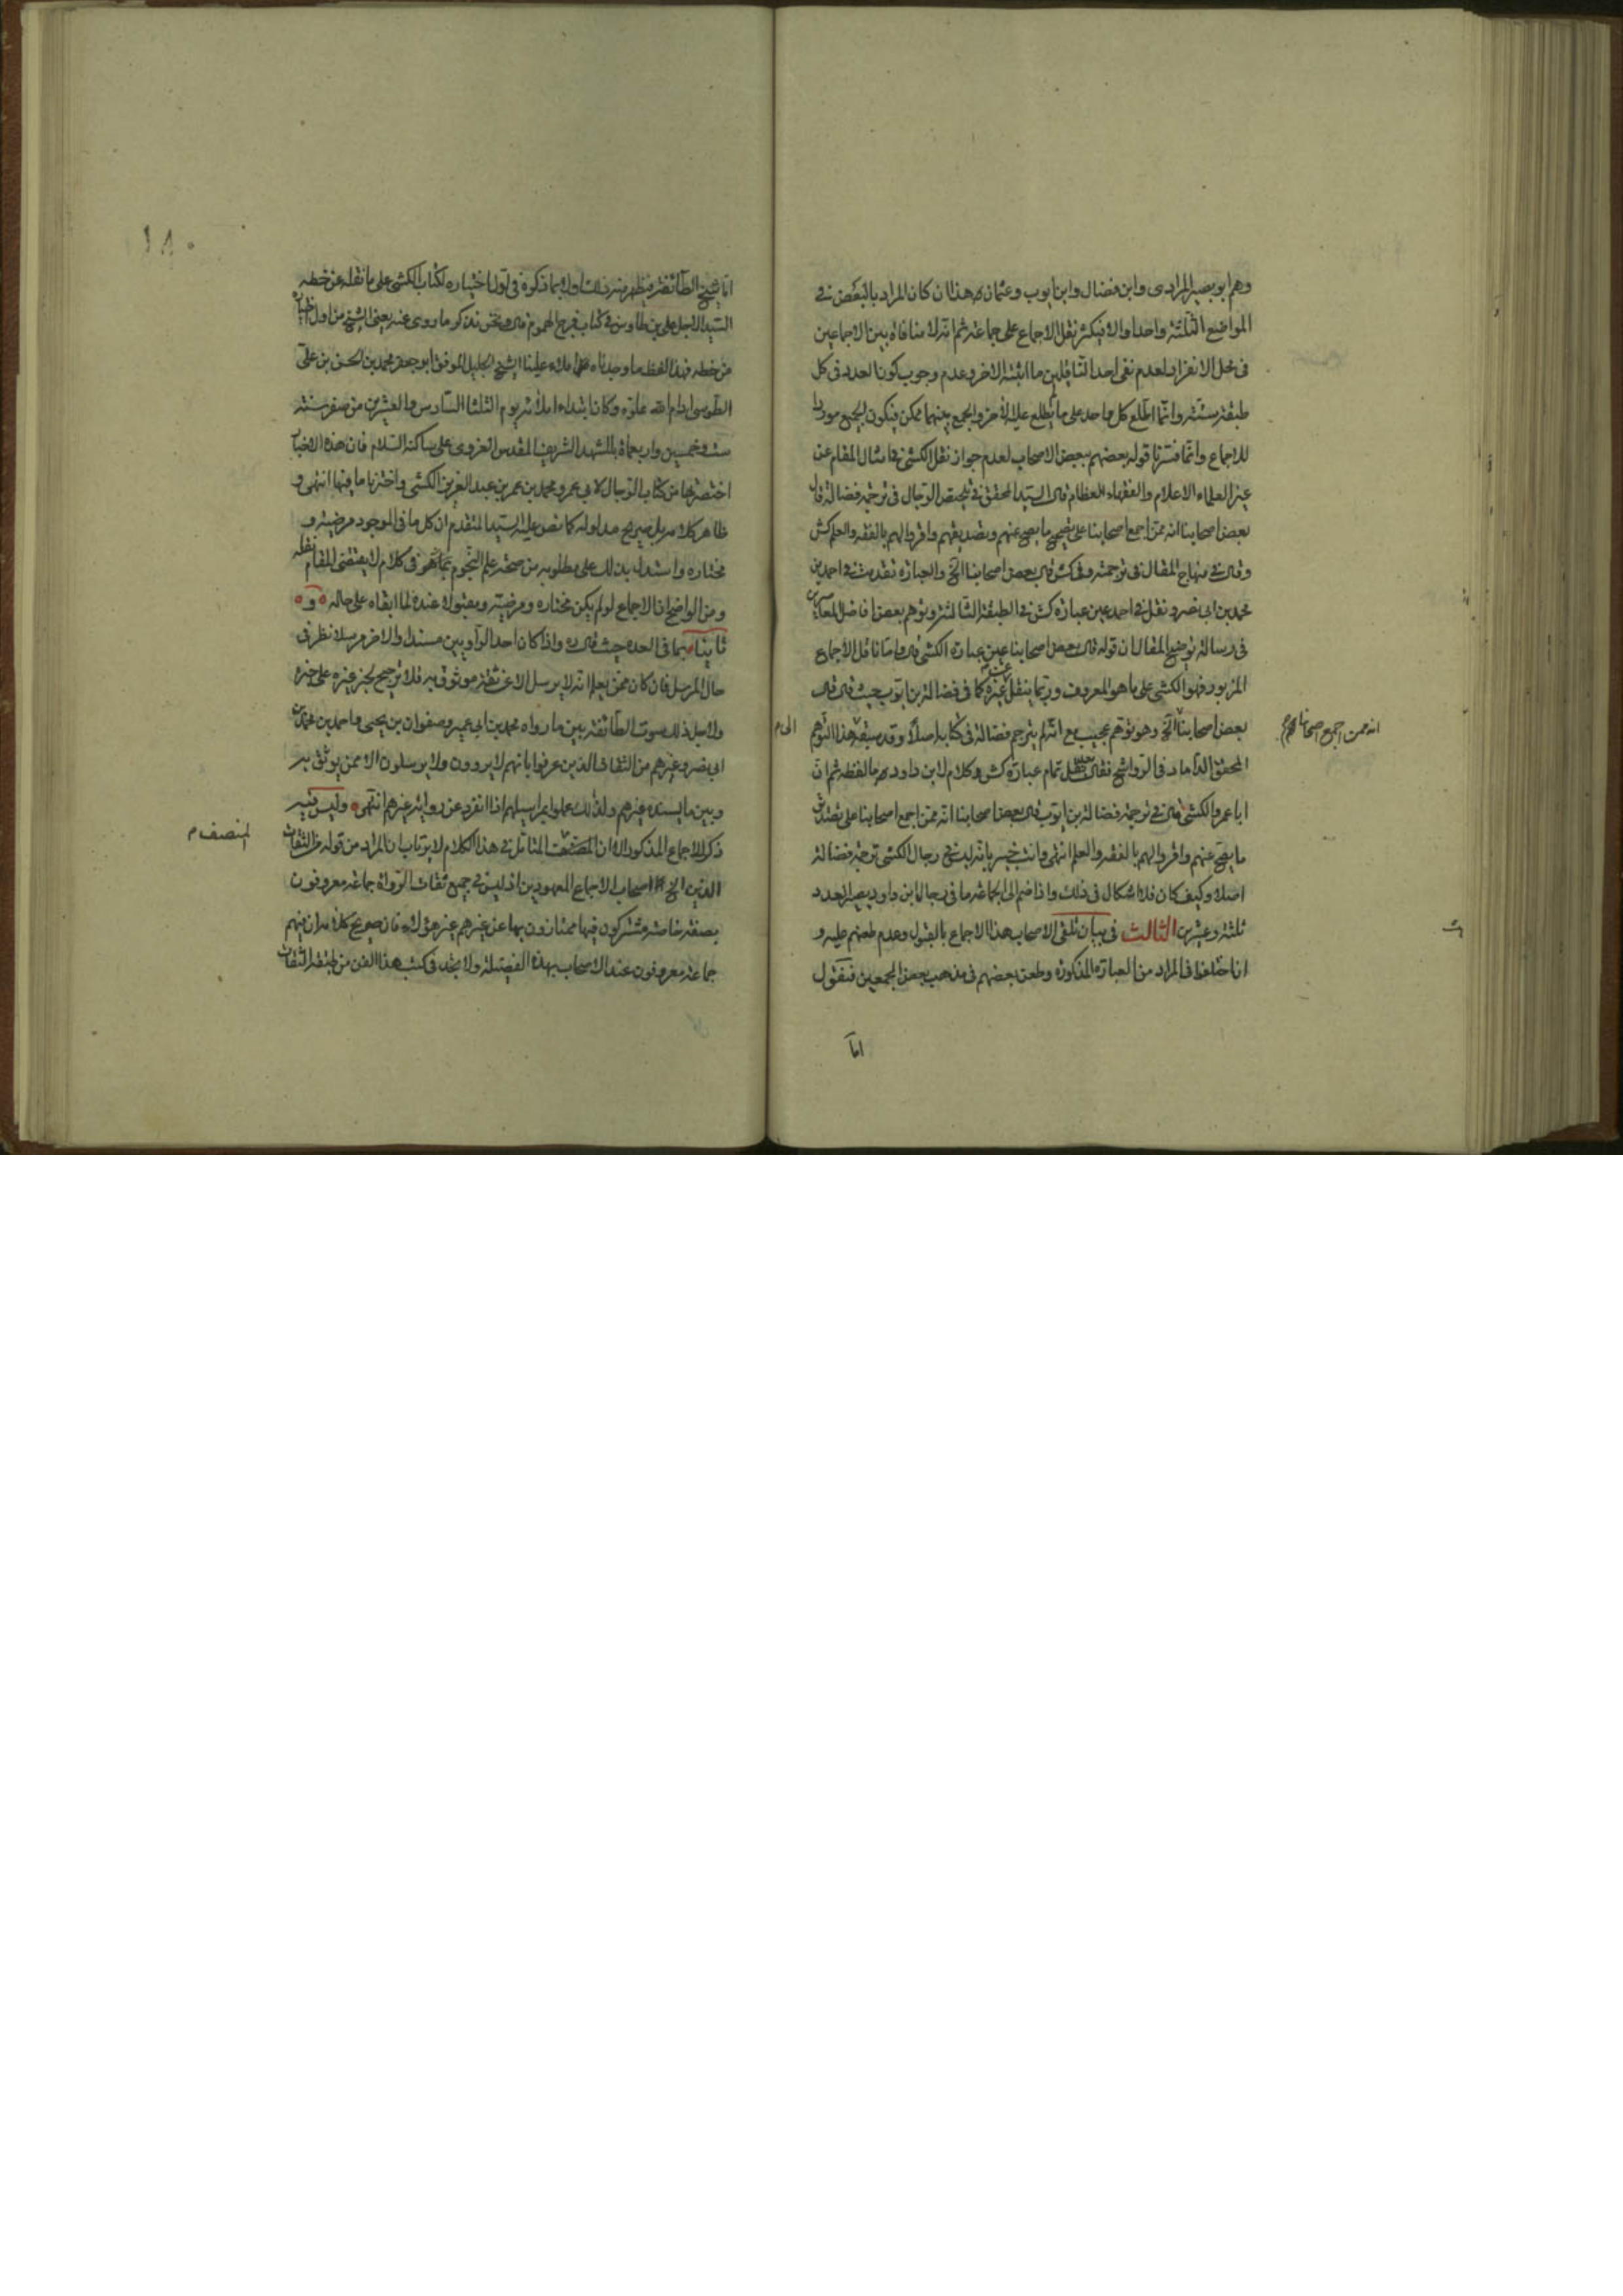 وهم ابو بصير المرادى وابن فضال وابن ايوب وعثمان هذا ان كان المراد بالبعض فى
المواضع الثلثة واحدا والا فيكثر نقل الاجماع على جماعة ثم انه لا منافاة بين الاجماعين
فى محل الانفراد لعدم نفى احد الناقلين ما اثبته الاخر وعدم وجوب كون العدد فى كل
طبقة ستة وانما اطلع كل واحد على ما لم يطلع عليه الاخر والجمع بينهما ممكن فيكون الجميع موردا
للاجماع وانما فسرنا قوله بعضهم ببعض الاصحاب لعدم جواز نقل الكشى فى امثال المقام عن
غير العلماء الاعلام والفقهاء العظام قال السيد المحقق فى تلخيص الرجال فى ترجمة فضالة قال
بعض اصحابنا انه ممن اجمع اصحابنا على تصحيح ما يصح عنهم وتصديقهم واقروا لهم بالفقه والعلم كش
وقال فى منهاج المقال فى ترجمته وفى كش قال بعض اصحابنا الخ والعبارة تقدمت فى احمد بن
محمد بن ابى نصر ونقل فى احمد عين عبارة كش فى الطبقة الثالثة وتوهم بعض افاضل المعاصرين
فى رسالة توضيح المقال ان قوله قال بعض اصحابنا عين عبارة الكشى قال واما ناقل الاجماع
المزبور فهو الكشى على ما هو المعروف وربما ينقل عن غيره كما فى فضالة بن ايوب حيث قال قال
بعض اصحابنا الخ وهو توهم عجيب مع انه لم يترجم فضالة فى كتابه اصلا وقد سبقه هذا التوهم
الى م
انه ممن اجمع اصحابنا
المحقق الداماد فى الرواشح فقال بعد نقل تمام عبارة كش وكلام لابن داود ما لفظه ثم ان
ابا عمرو الكشى قال فى ترجمة فضالة بن ايوب قال بعض اصحابنا انه ممن اجمع اصحابنا على تصديق
ما يصح عنهم واقروا لهم بالفقه والعلم انتهى وانت خبير بانه ليس فى رجال الكشى ترجمة فضالة
اصلا وكيف كان فلا اشكال فى ذلك واذا ضم الى الجماعة ما فى رجال ابن داود يصير العدد
ثلثة وعشرين الثالث فى بيان تلقى الاصحاب هذا الاجماع بالقبول وعدم طعنهم عليه و
ان اختلفوا فى المراد من العبارة المذكورة وطعن بعضهم فى مذهب بعض المجمعين فنقول
اما
١٨٠
اما شيخ الطائفة فيظهر منه ذلك اولا بما ذكره فى اول اختياره لكتاب الكشى على ما نقله عن خطه
السيد الاجل على بن طاوس فى كتاب فرج المهموم قال ونحن نذكر ما روى عنه يعنى الشيخ من اول اختياره
من خطه فهذا لفظ ما وجدناه املاء علينا الشيخ الجليل الموفق ابو جعفر محمد بن الحسن بن على
الطوسى ادام الله علوه وكان ابتداء املائه يوم الثلثا السادس والعشرين من صفر سنة
ست وخمسين واربعمائة بالمشهد الشريف المقدس الغروى على ساكنه السلام فان هذه الاخبار
اختصرتها من كتاب الرجال لابى عمرو محمد بن عمر بن عبد العزيز الكشى واخترنا ما فيها انتهى و
ظاهر كلامه بل صريح مدلوله كما نص عليه السيد المتقدم ان كل ما فى الموجود مرضيته و
مختاره واستدل بذلك على مطلوبه من صحة علم النجوم بما هو فى كلام لا يقتضى المقام نقله
ومن الواضح ان الاجماع لو لم يكن مختاره ومرضيته ومقبولا عنده لما ابقاه على حاله و
ثانيا بما فى العدة حيث قال ره واذا كان احد الراويين مسندا والاخر مرسلا نظر فى
حال المرسل فان كان ممن يعلم انه لا يرسل الا عن ثقة موثوق به فلا ترجيح لخبر غيره على خبره
ولاجل ذلك سوت الطائفة بين ما رواه محمد بن ابى عمير وصفوان بن يحيى واحمد بن محمد بن
ابى نصر وغيرهم من الثقات الذين عرفوا بانهم لا يروون ولا يرسلون الا ممن يوثق به
وبين ما يسنده غيرهم ولذلك عملوا بمراسيلهم اذا انفرد عن رواية غيرهم انتهى وليس فيه
ذكر للاجماع المذكور الا ان المتأمل فى هذا الكلام لا يرتاب ان المراد من قوله من الثقات
المنصف م
الذين الخ اصحاب الاجماع المعهودين اذ ليس فى جميع ثقات الرواة جماعة معروفون
بصفة خاصة مشتركون فيها ممتازون بها عن غيرهم غير هؤلاء فان صريح كلامه ان فيهم
جماعة معروفون عند الاصحاب بهذه الفضيلة ولا تجد فى كتب هذا الفن من طبقة الثقات